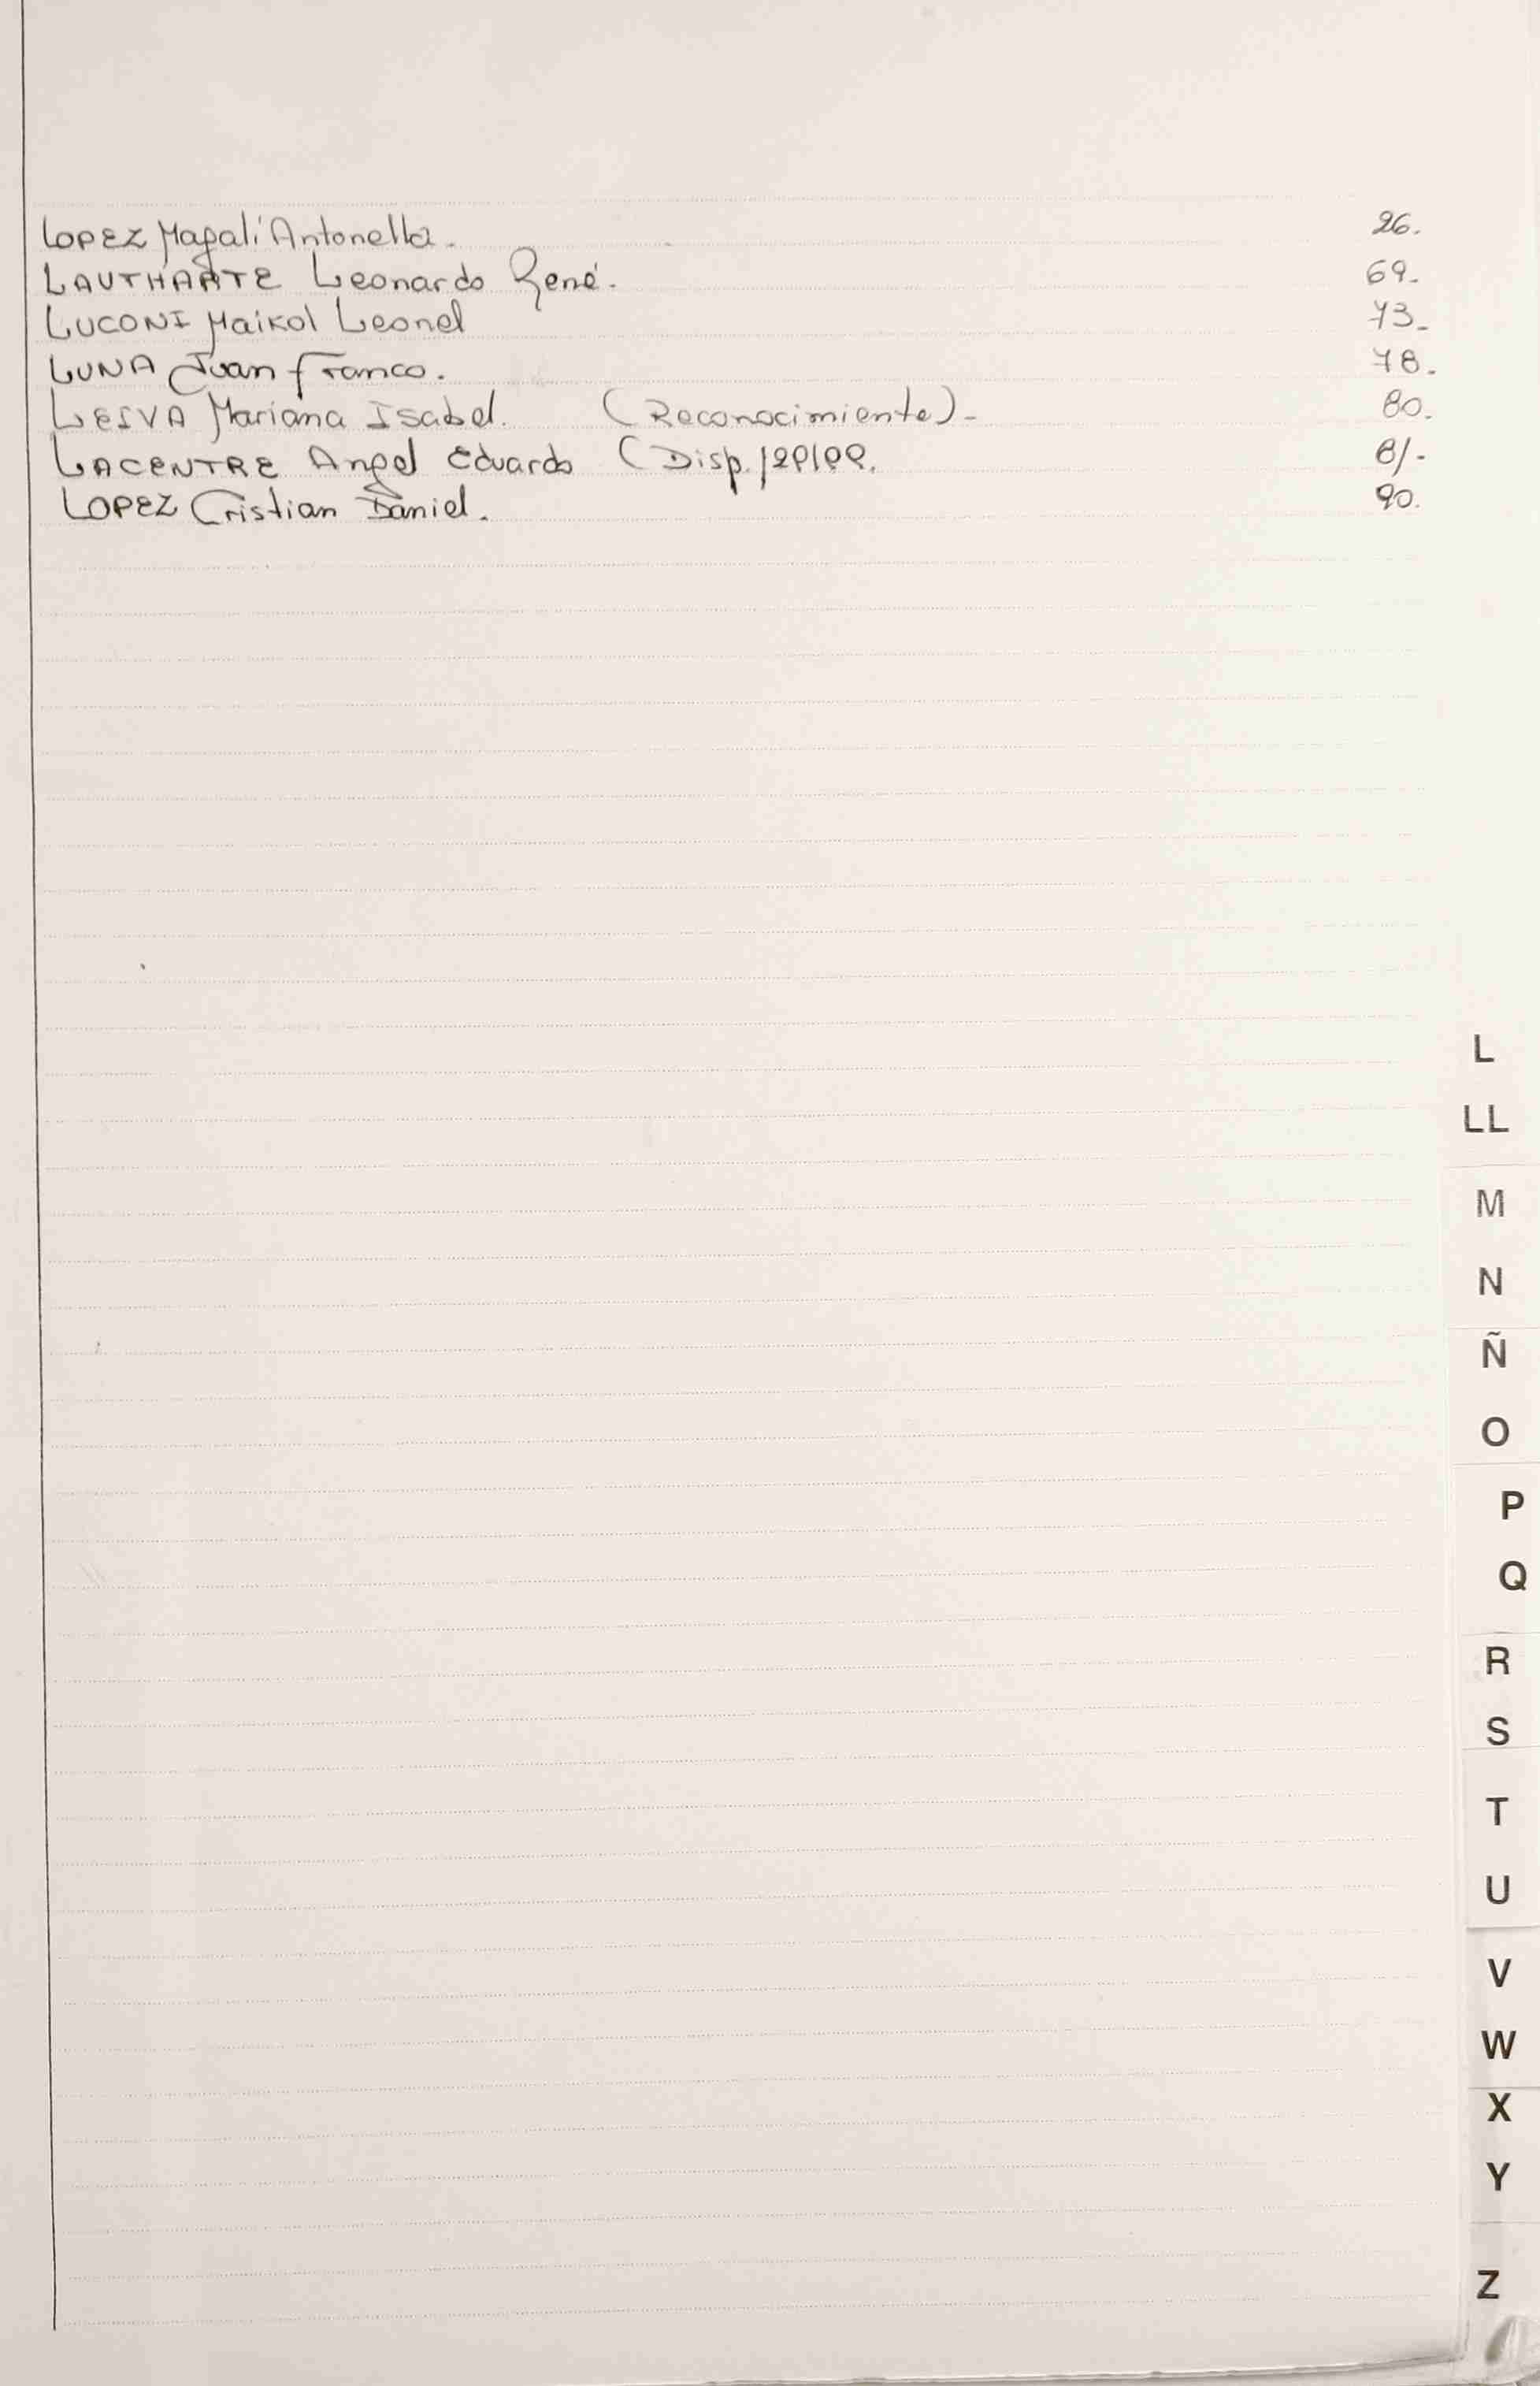 LOPEZ Magali Antonella. 26.
LAUTHARTE Leonardo René. 69.
LUCONI Maikol Leonel 73.
LUNA Juan Franco. 78.
LEIVA Mariana Isabel. (Reconocimiento). 80.
LACENTRE Angel Eduardo (Disp. 81.
LOPEZ Cristian Daniel. 90.
L
LL
M
N
Ñ
O
P
Q
R
S
T
U
V
W
X
Y
Z